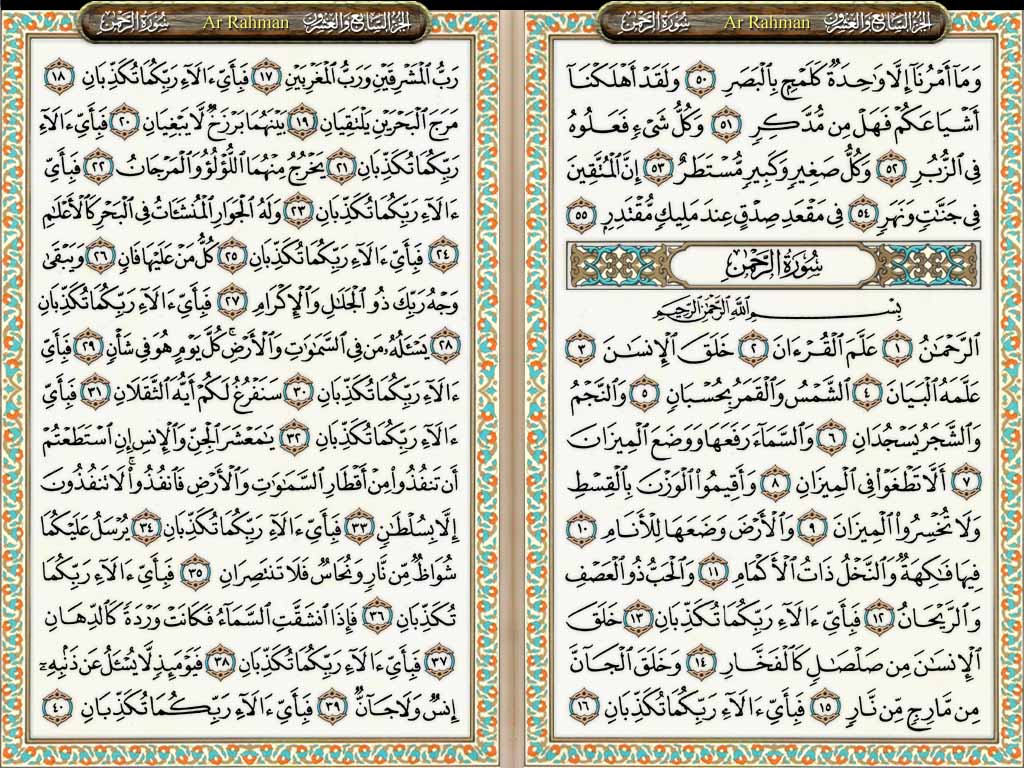 سُورَةُ الرَّحْمَٰن Ar Rahman الجزء السابع والعشرون
وَمَآ أَمْرُنَآ إِلَّا وَٰحِدَةٌ كَلَمْحٍۭ بِٱلْبَصَرِ ٥٠ وَلَقَدْ أَهْلَكْنَآ
أَشْيَاعَكُمْ فَهَلْ مِن مُّدَّكِرٍ ٥١ وَكُلُّ شَىْءٍ فَعَلُوهُ
فِى ٱلزُّبُرِ ٥٢ وَكُلُّ صَغِيرٍ وَكَبِيرٍ مُّسْتَطَرٌ ٥٣ إِنَّ ٱلْمُتَّقِينَ
فِى جَنَّٰتٍ وَنَهَرٍ ٥٤ فِى مَقْعَدِ صِدْقٍ عِندَ مَلِيكٍ مُّقْتَدِرٍۭ ٥٥
سُورَةُ الرَّحْمٰن
بِسْمِ ٱللَّهِ ٱلرَّحْمَٰنِ ٱلرَّحِيمِ
ٱلرَّحْمَٰنُ ١ عَلَّمَ ٱلْقُرْءَانَ ٢ خَلَقَ ٱلْإِنسَٰنَ ٣
عَلَّمَهُ ٱلْبَيَانَ ٤ ٱلشَّمْسُ وَٱلْقَمَرُ بِحُسْبَانٍ ٥ وَٱلنَّجْمُ
وَٱلشَّجَرُ يَسْجُدَانِ ٦ وَٱلسَّمَآءَ رَفَعَهَا وَوَضَعَ ٱلْمِيزَانَ
٧ أَلَّا تَطْغَوْا۟ فِى ٱلْمِيزَانِ ٨ وَأَقِيمُوا۟ ٱلْوَزْنَ بِٱلْقِسْطِ
وَلَا تُخْسِرُوا۟ ٱلْمِيزَانَ ٩ وَٱلْأَرْضَ وَضَعَهَا لِلْأَنَامِ ١٠
فِيهَا فَٰكِهَةٌ وَٱلنَّخْلُ ذَاتُ ٱلْأَكْمَامِ ١١ وَٱلْحَبُّ ذُو ٱلْعَصْفِ
وَٱلرَّيْحَانُ ١٢ فَبِأَىِّ ءَالَآءِ رَبِّكُمَا تُكَذِّبَانِ ١٣ خَلَقَ
ٱلْإِنسَٰنَ مِن صَلْصَٰلٍ كَٱلْفَخَّارِ ١٤ وَخَلَقَ ٱلْجَآنَّ
مِن مَّارِجٍ مِّن نَّارٍ ١٥ فَبِأَىِّ ءَالَآءِ رَبِّكُمَا تُكَذِّبَانِ ١٦
سُورَةُ الرَّحْمَٰن Ar Rahman الجزء السابع والعشرون
رَبُّ ٱلْمَشْرِقَيْنِ وَرَبُّ ٱلْمَغْرِبَيْنِ ١٧ فَبِأَىِّ ءَالَآءِ رَبِّكُمَا تُكَذِّبَانِ ١٨
مَرَجَ ٱلْبَحْرَيْنِ يَلْتَقِيَانِ ١٩ بَيْنَهُمَا بَرْزَخٌ لَّا يَبْغِيَانِ ٢٠ فَبِأَىِّ ءَالَآءِ
رَبِّكُمَا تُكَذِّبَانِ ٢١ يَخْرُجُ مِنْهُمَا ٱللُّؤْلُؤُ وَٱلْمَرْجَانُ ٢٢ فَبِأَىِّ
ءَالَآءِ رَبِّكُمَا تُكَذِّبَانِ ٢٣ وَلَهُ ٱلْجَوَارِ ٱلْمُنشَـَٔاتُ فِى ٱلْبَحْرِ كَٱلْأَعْلَٰمِ
٢٤ فَبِأَىِّ ءَالَآءِ رَبِّكُمَا تُكَذِّبَانِ ٢٥ كُلُّ مَنْ عَلَيْهَا فَانٍ ٢٦ وَيَبْقَىٰ
وَجْهُ رَبِّكَ ذُو ٱلْجَلَٰلِ وَٱلْإِكْرَامِ ٢٧ فَبِأَىِّ ءَالَآءِ رَبِّكُمَا تُكَذِّبَانِ
٢٨ يَسْـَٔلُهُۥ مَن فِى ٱلسَّمَٰوَٰتِ وَٱلْأَرْضِ ۚ كُلَّ يَوْمٍ هُوَ فِى شَأْنٍ ٢٩ فَبِأَىِّ
ءَالَآءِ رَبِّكُمَا تُكَذِّبَانِ ٣٠ سَنَفْرُغُ لَكُمْ أَيُّهَ ٱلثَّقَلَانِ ٣١ فَبِأَىِّ
ءَالَآءِ رَبِّكُمَا تُكَذِّبَانِ ٣٢ يَٰمَعْشَرَ ٱلْجِنِّ وَٱلْإِنسِ إِنِ ٱسْتَطَعْتُمْ
أَن تَنفُذُوا۟ مِنْ أَقْطَارِ ٱلسَّمَٰوَٰتِ وَٱلْأَرْضِ فَٱنفُذُوا۟ ۚ لَا تَنفُذُونَ
إِلَّا بِسُلْطَٰنٍ ٣٣ فَبِأَىِّ ءَالَآءِ رَبِّكُمَا تُكَذِّبَانِ ٣٤ يُرْسَلُ عَلَيْكُمَا
شُوَاظٌ مِّن نَّارٍ وَنُحَاسٌ فَلَا تَنتَصِرَانِ ٣٥ فَبِأَىِّ ءَالَآءِ رَبِّكُمَا
تُكَذِّبَانِ ٣٦ فَإِذَا ٱنشَقَّتِ ٱلسَّمَآءُ فَكَانَتْ وَرْدَةً كَٱلدِّهَانِ
٣٧ فَبِأَىِّ ءَالَآءِ رَبِّكُمَا تُكَذِّبَانِ ٣٨ فَيَوْمَئِذٍ لَّا يُسْـَٔلُ عَن ذَنۢبِهِۦٓ
إِنسٌ وَلَا جَآنٌّ ٣٩ فَبِأَىِّ ءَالَآءِ رَبِّكُمَا تُكَذِّبَانِ ٤٠